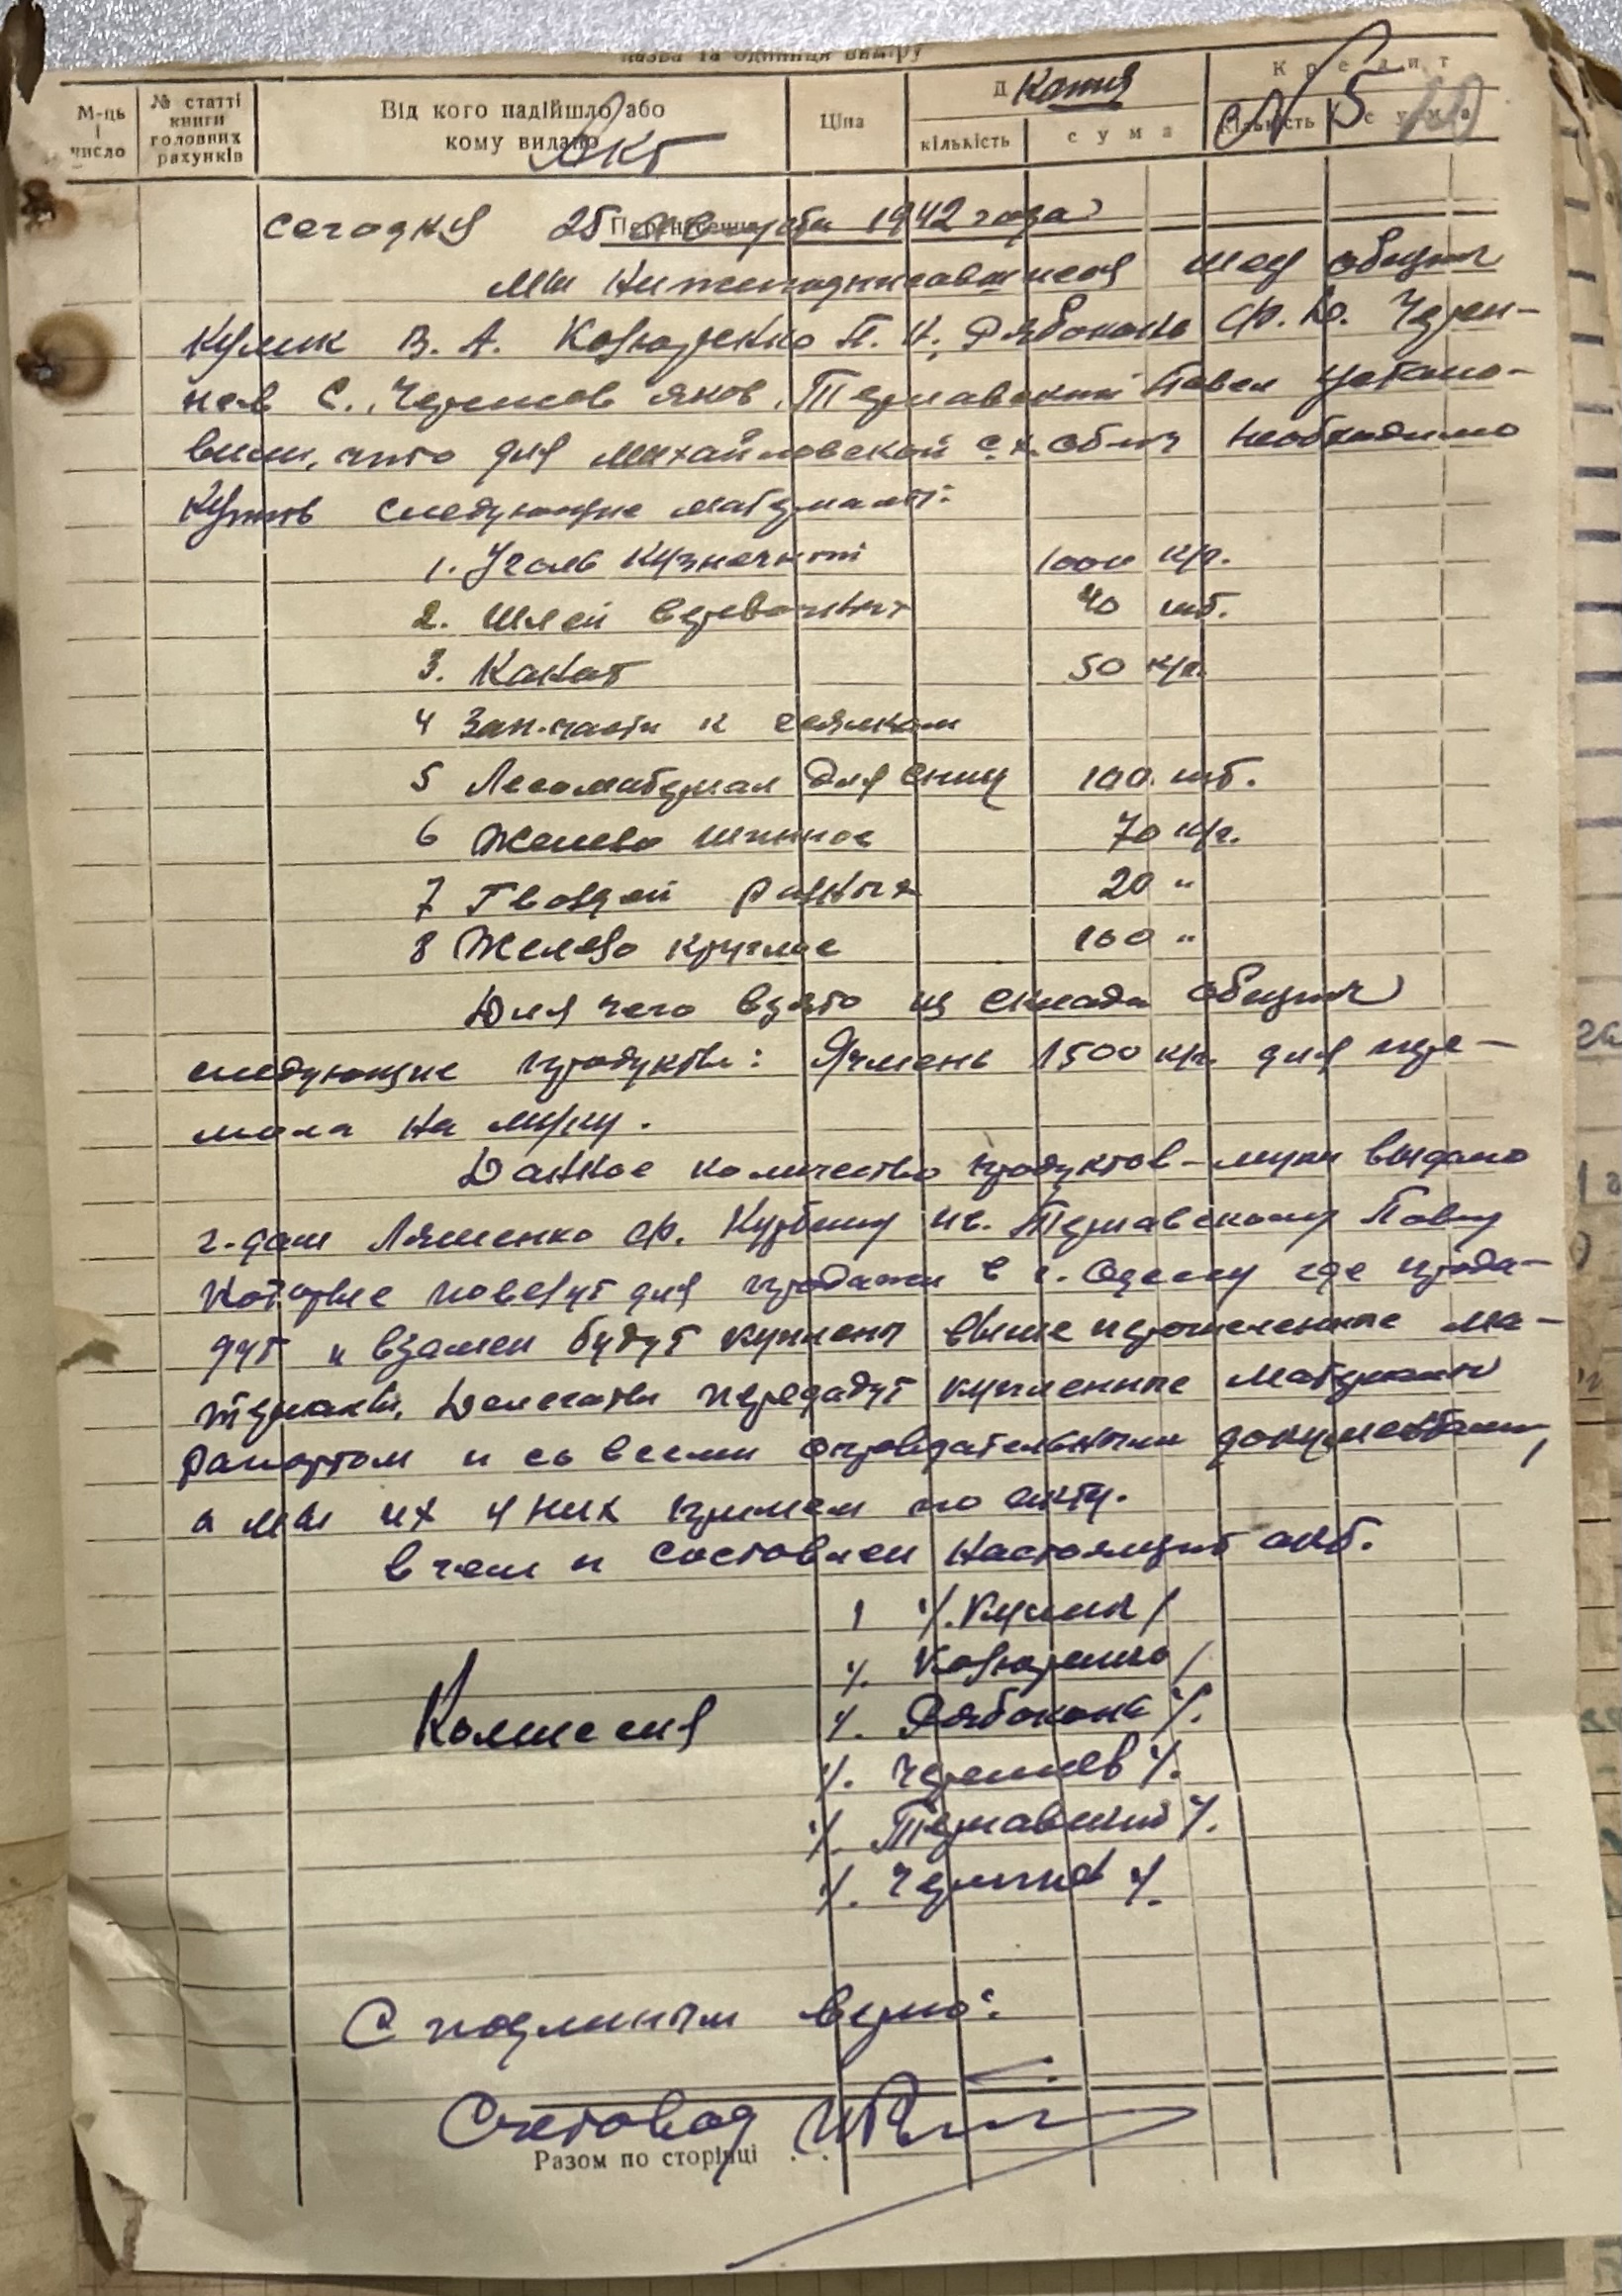 назва та одиниця виміру
М-ць і число
№ статті книги головних рахунків
Від кого надійшло або кому видано
Ціна
Д Копия
кількість
сума
Кредит
кількість
сума
№ 5
Акт
Перенесення
сегодня 25 1942 года
Мы нижеподписавшиеся общины
Кулик В. А. Козюренко П. Н., Рябоконь Ф. Ю. Череп-
нев С., Черпнов Яков, Терлавский Павел устано-
вили, что для Михайловской с.х. общ необходимо
купить следующие материалы:
1. Уголь кузнечный 1000 к/г.
2. Шлей веревочных 40 шт.
3. Канат 50 к/г.
4 Зап.части к сеялкам
5 Лесоматериал для спиц 100. шт.
6 Железо шинное 70 к/г.
7 Гвоздей разных 20 "
8 Железо круглое 100 "
Для чего взято из склада общины
следующие продукты: Ячмень 1500 к/г. для пере-
мола на муку.
Данное количество продуктов – муки выдано
г-дам Ляшенко Ф. Ив. Терлавскому Павлу
которые повезут для продажи в г. Одессу где прода-
дут и взамен будут куплены выше перечисленные ма-
териалы. Делегаты передадут купленные материалы
рапортом и со всеми оправдательными документами,
а мы их у них примем по акту.
в чем и составлен настоящий акт.
1 /. Кулик /
/. Козюренко /
Комиссия /. Рябоконь /.
/. Черепнев /.
/. Терлавский /.
/. /.
С подлинным верно:
Счетовод
Разом по сторінці . .